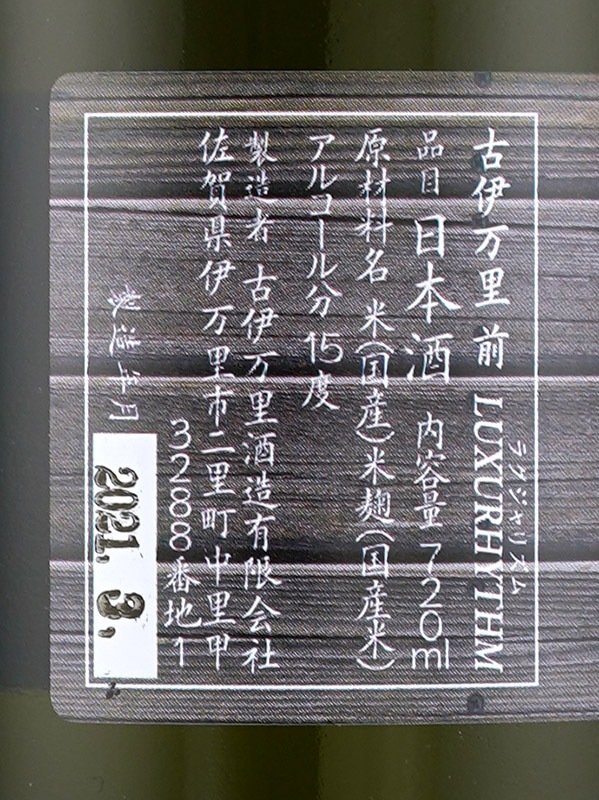 古伊万里 前 LUXURHYTHM
ラグジャリズム
品目 日本酒 内容量 720ml
原材料名 米(国産)米麹(国産米)
アルコール分 15度
製造者 古伊万里酒造有限会社
佐賀県伊万里市二里町中里甲
3288番地1
製造年月 2021. 3.